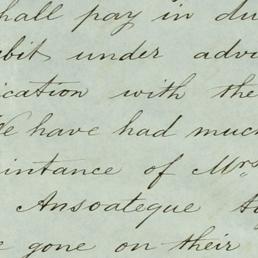 shall pay in du
bit under advi
ication with the
We have had much
intance of Mrs
Ansoategue
e gone on their